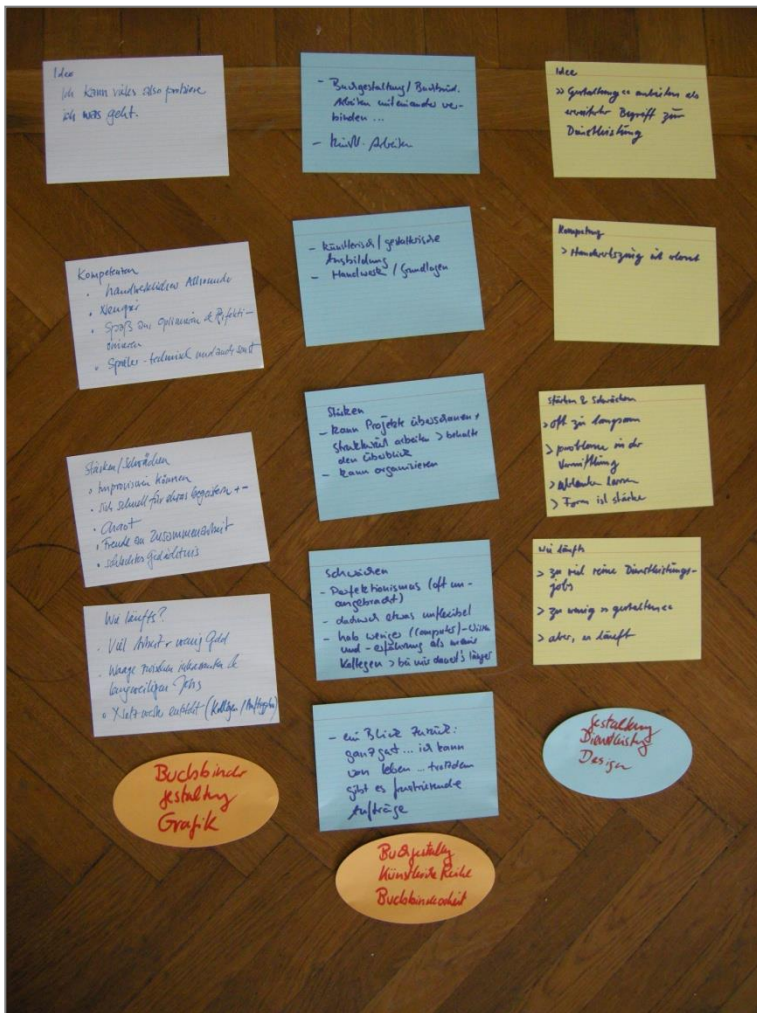 Idee
Ich kann vieles also probiere
ich was geht.
Kompetenzen
• handwerklicher Allrounder
• Neugier
• Spaß am Optimieren & Perfekti-
onieren
• Spieler - technisch und auch sonst
Stärken/Schwächen
• Improvisieren können
• sich schnell für etwas begeistern + -
• Chaot
• Freude an Zusammenarbeit
• schlechtes Gedächtnis
Wie läufts?
• Viel Arbeit + wenig Geld
• Waage zwischen interessanten &
langweiligen Jobs
• Netzwerke (Kollegen/Auftragg.)
Buchbinder
gestaltung
Grafik
- Buchgestaltung/Buchbind.
Arbeiten miteinander ver-
binden ...
- künstl. Arbeiten
- künstlerisch/gestalterische
Ausbildung
- Handwerk/Grundlagen
Stärken
- kann Projekte überschauen +
strukturiert arbeiten > behalte
den Überblick
- kann organisieren
Schwächen
- Perfektionismus (oft un-
angebracht)
- dadurch etwas unflexibel
- hab weniger (Computer)-Wissen
und -erfahrung als meine
Kollegen > bei mir dauert's länger
- ein Blick zurück:
ganz gut ... ich kann
von leben ... trotzdem
gibt es frustrierende
Aufträge
Buchgestaltg
Künstlerische
Buchbindearbeit
Idee
>> Gestaltung << anbieten als
erweiterter Begriff zur
Dienstleistung
Kompetenz
> Handwerkszeug ist
Stärken & Schwächen
> oft zu langsam
> probleme in der
Vermittlung
> lernen
> Form ist stärke
wie läufts
> zu viel reine Dienstleistungs-
jobs
> zu wenig >> gestalten <<
> aber, es läuft
Gestaltung
Dienstleistg
Design